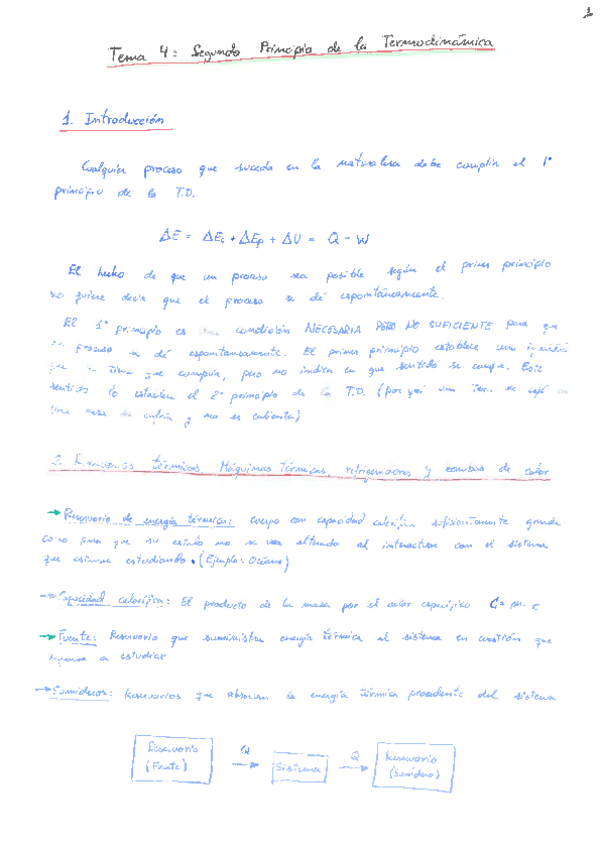 1
Tema 4: Segundo Principio de la Termodinámica
1. Introducción
Cualquier proceso que suceda en la naturaleza debe cumplir el 1º
principio de la T.D.
ΔE = ΔEc + ΔEp + ΔU = Q - W
El hecho de que un proceso sea posible según el primer principio
no quiere decir que el proceso se dé espontáneamente.
El 1º principio es una condición NECESARIA PERO NO SUFICIENTE para que
un proceso se dé espontáneamente. El primer principio establece una
que se tiene que cumplir, pero no indica en que sentido se cumple. Este
sentido lo establece el 2º principio de la T.D. (por qué una se
una mesa se enfría y no se calienta)
2. Reservorios térmicos. Máquinas térmicas, refrigeradores y bombas de calor
→ Reservorio de energía térmica: Cuerpo con capacidad calorífica suficientemente grande
como para que su estado no se vea alterado al interactuar con el sistema
que estamos estudiando. (Ejemplo: Océano)
→ Capacidad calorífica: El producto de la masa por el calor específico C = m · c
→ Fuente: Reservorio que suministra energía térmica al sistema en cuestión que
vayamos a estudiar
→ Sumideros: Reservorios que absorben la energía térmica procedente del sistema
Reservorio
(Fuente)
Q
Sistema
Q
Reservorio
(Sumidero)